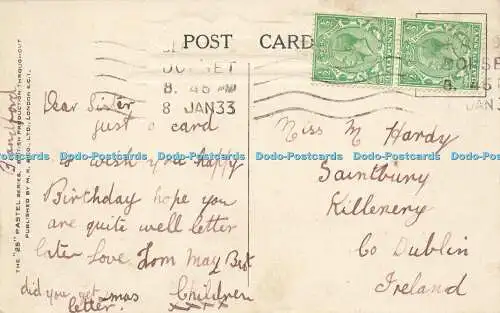 POST CARD
DORSET
8. 45 PM
8 JAN 33
DORSET
8. 45 PM
JAN 3
THE "25" PASTEL SERIES, BRITISH PRODUCTION THROUGHOUT
PUBLISHED BY
LTD., LONDON E.C.1.
Blandford
Dear Sister
Just a card
to wish you happy
Birthday hope you
are quite well letter
later Love from May But
did you get xmas
letter.
Children
x x x x
Miss M Hardy
Saintbury
Killenery
Co Dublin
Ireland
Dodo-Postcards Dodo-Postcards Dodo-Postcards Dodo-Postcards Dodo-Postcards Dodo-Postcards